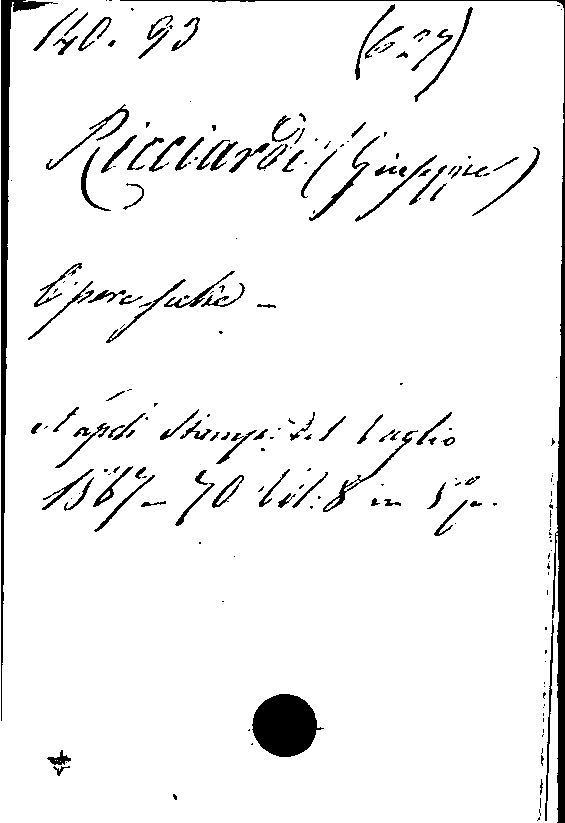 140. 93 (6.27)
Ricciardi (Giuseppe)
Opere scelte –
Napoli Stamp: del Vaglio
1867–70 Vol: 8 in